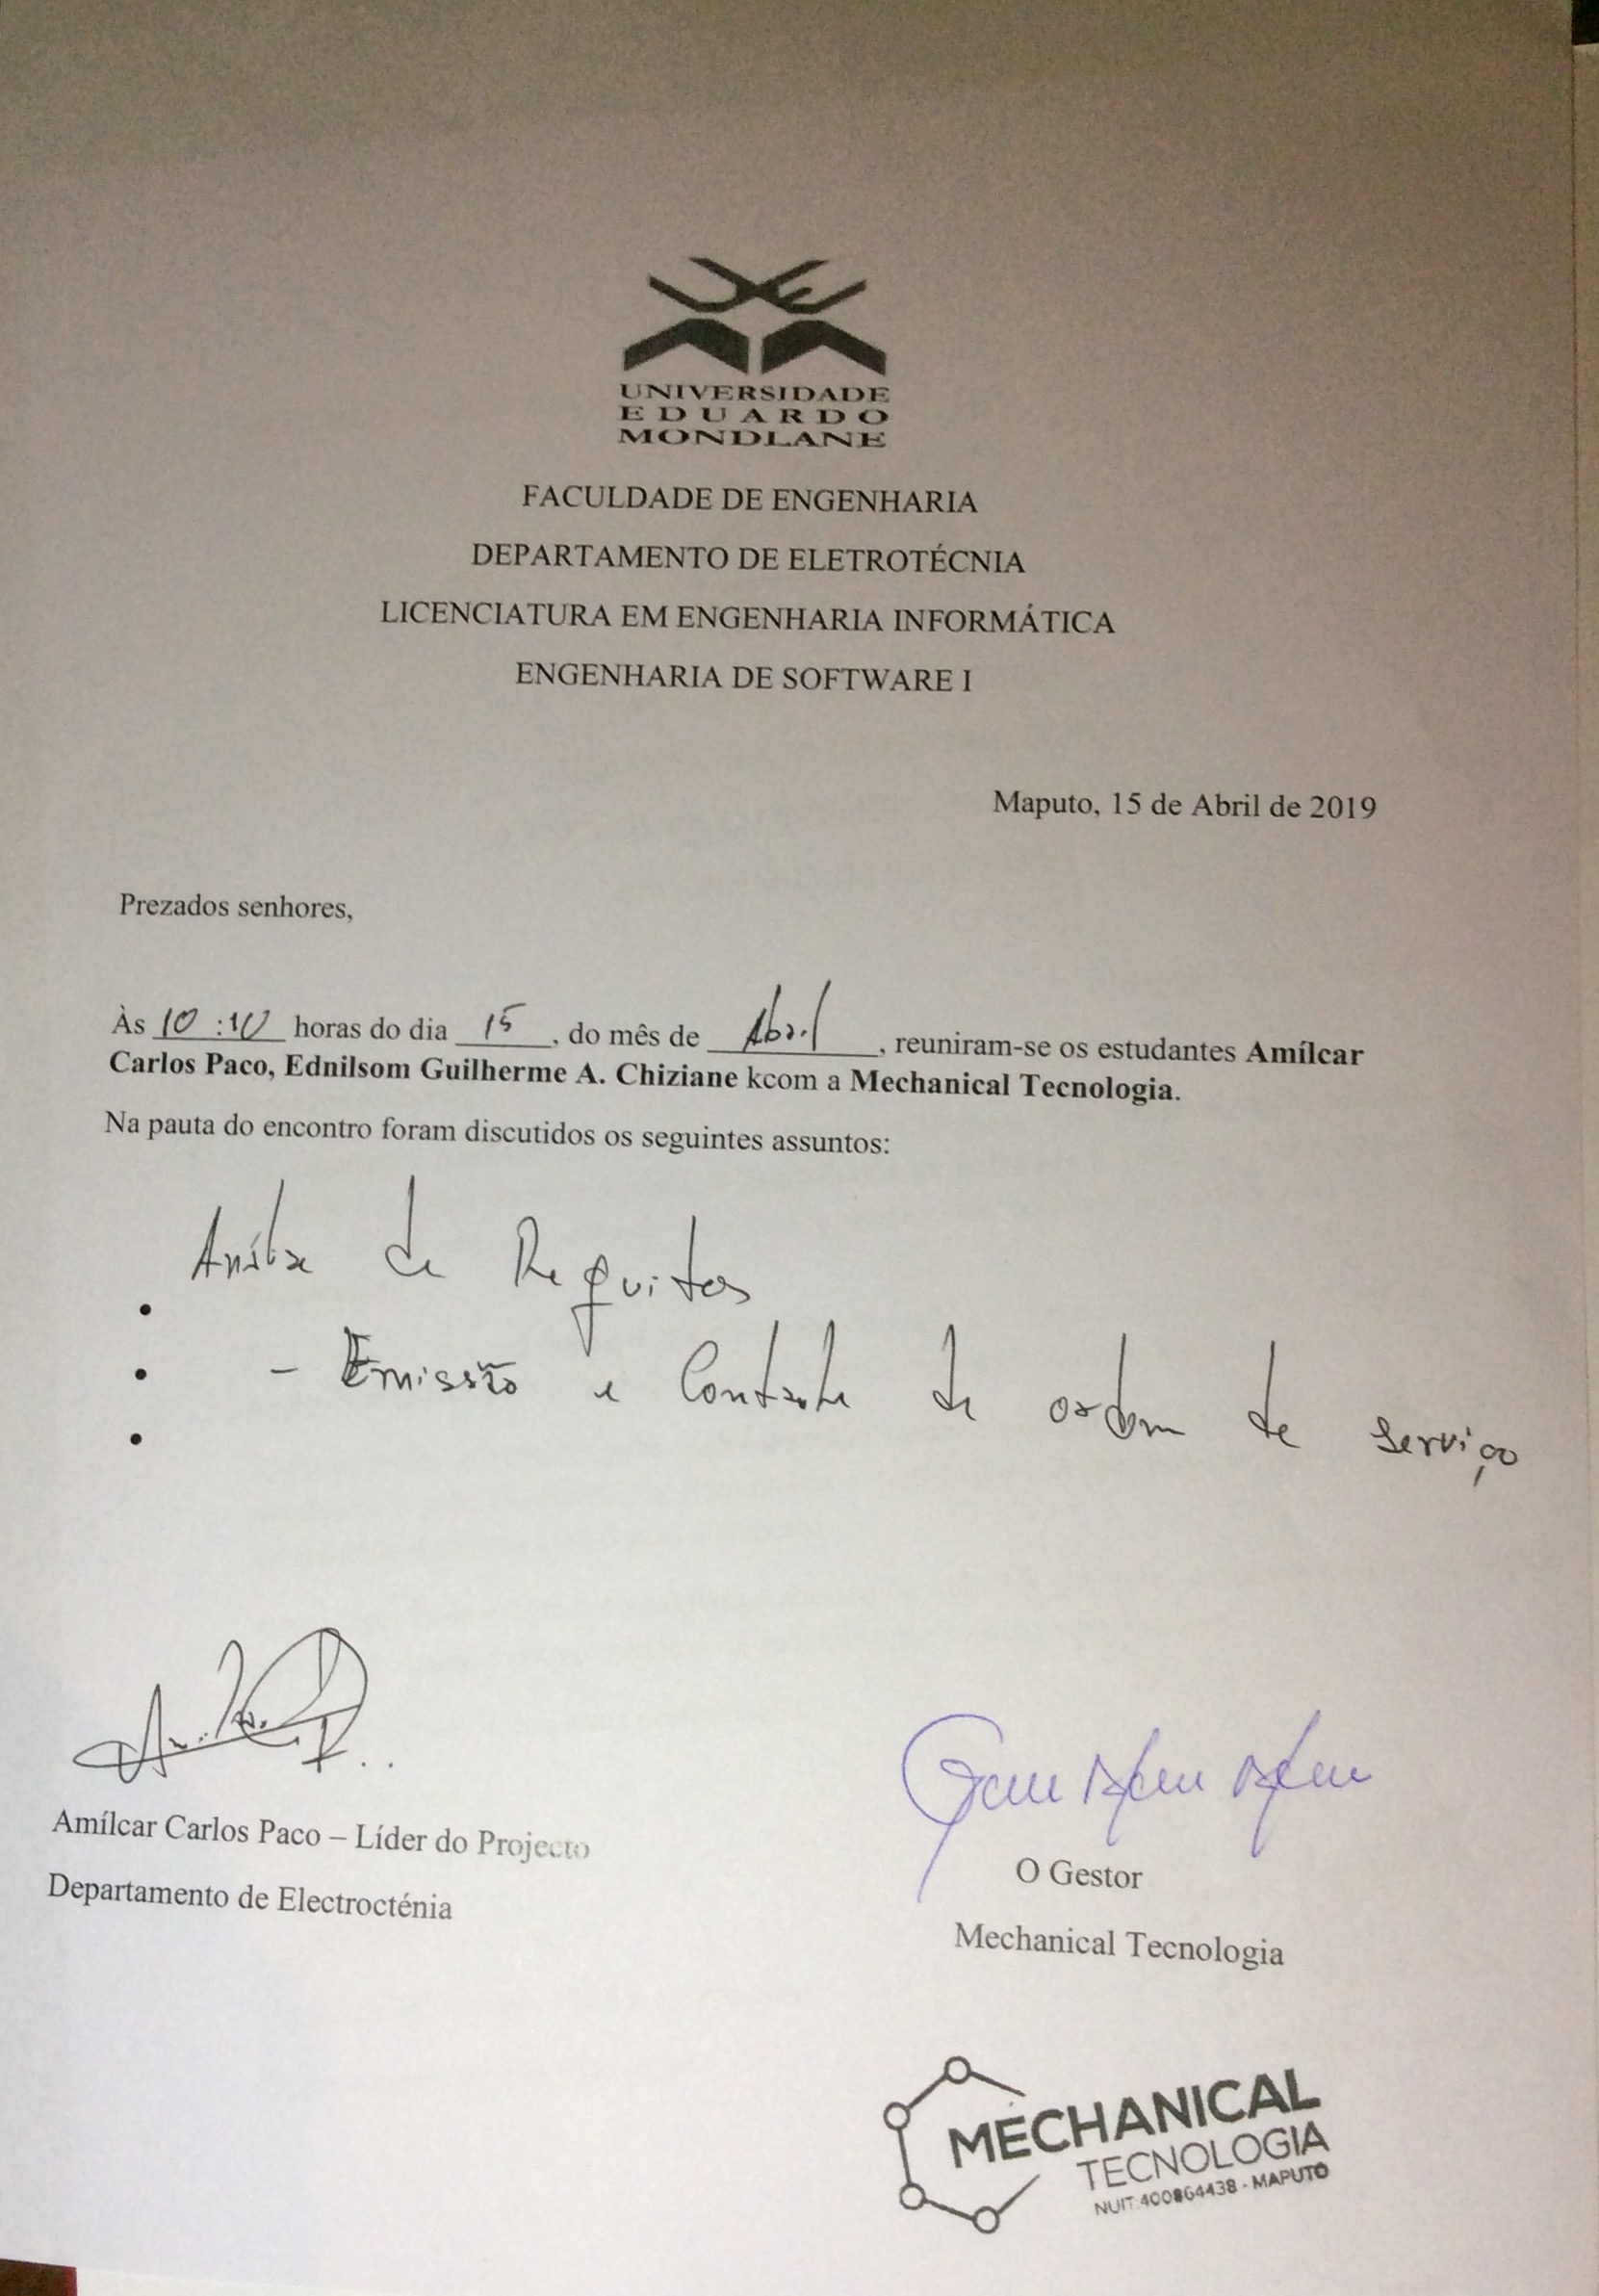 UNIVERSIDADE
EDUARDO
MONDLANE
FACULDADE DE ENGENHARIA
DEPARTAMENTO DE ELETROTÉCNIA
LICENCIATURA EM ENGENHARIA INFORMÁTICA
ENGENHARIA DE SOFTWARE I
Maputo, 15 de Abril de 2019
Prezados senhores,
Às 10:10 horas do dia 15, do mês de Abril, reuniram-se os estudantes Amílcar
Carlos Paco, Ednilsom Guilherme A. Chiziane kcom a Mechanical Tecnologia.
Na pauta do encontro foram discutidos os seguintes assuntos:
Análise de Requitos
- Emissão e Controle de ordem de serviço
Amílcar Carlos Paco – Líder do Projecto
Departamento de Electrocténia
O Gestor
Mechanical Tecnologia
MECHANICAL
TECNOLOGIA
NUIT:400864438 - MAPUTO